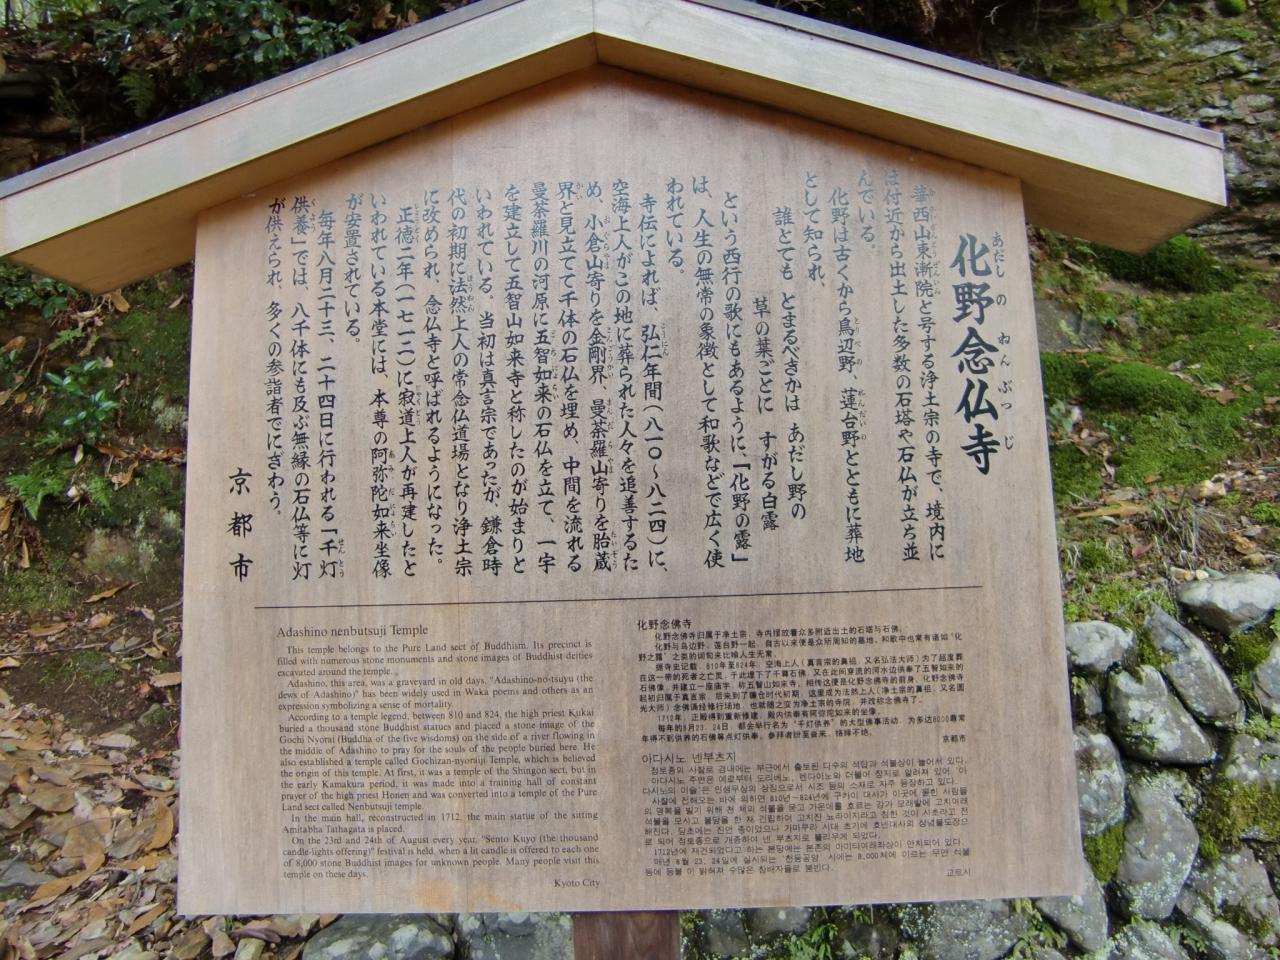 化野念仏寺
華西山東漸院と号する浄土宗の寺で、境内に
は付近から出土した多数の石塔や石仏が立ち並
んでいる。
化野は古くから鳥辺野、蓮台野とともに葬地
として知られ、
誰とても とまるべきかは あだし野の
草の葉ごとに すがる白露
という西行の歌にもあるように、「化野の露」
は、人生の無常の象徴として和歌などで広く使
われている。
寺伝によれば、弘仁年間（八一〇～八二四）に、
空海上人がこの地に葬られた人々を追善するた
め、小倉山寄りを金剛界、曼荼羅山寄りを胎蔵
界と見立てて千体の石仏を埋め、中間を流れる
曼荼羅川の河原に五智如来の石仏を立て、一宇
を建立して五智山如来寺と称したのが始まりと
いわれている。当初は真言宗であったが、鎌倉時
代の初期に法然上人の常念仏道場となり浄土宗
に改められ、念仏寺と呼ばれるようになった。
正徳二年（一七一二）に寂道上人が再建したと
いわれている本堂には、本尊の阿弥陀如来坐像
が安置されている。
毎年八月二十三、二十四日に行われる「千灯
供養」では、八千体にも及ぶ無縁の石仏等に灯
が供えられ、多くの参詣者でにぎわう。
京都市
Adashino nenbutsuji Temple
This temple belongs to the Pure Land sect of Buddhism. Its precinct is
filled with numerous stone monuments and stone images of Buddhist deities
excavated around the temple.
Adashino, this area, was a graveyard in old days. "Adashino-no-tsuyu (the
dews of Adashino)" has been widely used in Waka poems and others as an
expression symbolizing a sense of mortality.
According to a temple legend, between 810 and 824, the high priest Kukai
buried a thousand stone Buddhist statues and placed a stone image of the
Gochi Nyorai (Buddha of the five wisdoms) on the side of a river flowing in
the middle of Adashino to pray for the souls of the people buried here. He
also established a temple called Gochizan-nyoraiji Temple, which is believed
the origin of this temple. At first, it was a temple of the Shingon sect, but in
the early Kamakura period, it was made into a training hall of constant
prayer of the high priest Honen and was converted into a temple of the Pure
Land sect called Nenbutsuji temple.
In the main hall, reconstructed in 1712, the main statue of the sitting
Amitabha Tathagata is placed.
On the 23rd and 24th of August every year, "Sento Kuyo (the thousand
candle-lights offering)" festival is held, when a lit candle is offered to each one
of 8,000 stone Buddhist images for unknown people. Many people visit this
temple on these days.
Kyoto City
化野念佛寺
化野念佛寺归属于净土宗，寺内摆放着众多附近出土的石塔与石佛。
化野与鸟边野、莲台野一起，自古以来便是众所周知的墓地。和歌中也常有诸如“化
野之露”之类的词句来比喻人生无常。
据寺史记载，810年至824年，空海上人（真言宗的鼻祖，又名弘法大师）为了超度葬
在这一带的死者之亡灵，于此埋下了千尊石佛，又在此间穿流的河水边供奉了五智如来的
石佛像，并建立一座庙宇，称五智山如来寺，相传这便是化野念佛寺的前身。化野念佛寺
起初归属于真言宗，后来到了镰仓时代初期，这里成为法然上人（净土宗的鼻祖，又名圆
光大师）念佛诵经修行场地，也就随之变为净土宗的寺院，并改称念佛寺了。
1712年，正殿得到重新修建，殿内供奉有阿弥陀如来的坐像。
每年的8月23、24日，都会举行名为“千灯供养”的大型佛事活动，为多达8000尊常
年得不到供养的石佛等点灯供奉，参拜者纷至沓来，络绎不绝。
京都市
아다시노 넨부츠지
정토종의 사찰로 경내에는 부근에서 출토된 다수의 석탑과 석불상이 늘어서 있다.
아다시노 주변은 예로부터 도리베노, 렌다이노와 더불어 장지로 알려져 있어, '아
다시노의 이슬'은 인생무상의 상징으로서 시조 등의 소재로 자주 등장하고 있다.
사찰에 전해오는 바에 의하면 810년~824년에 구카이 대사가 이곳에 묻힌 사람들
의 명복을 빌기 위해 천 체의 석불을 묻고 가운데를 흐르는 강가 모래밭에 고치여래
석불을 모시고
1712년에 재건되었다고 하는 본당에는 본존의 아미타여래좌상이 안치되어 있다.
매년 8월 23, 24일에 실시되는 '천등공양' 시에는 8,000체에 이르는 무연 석불
등에 등불이 밝혀져 수많은 참배자들로 붐빈다.
교토시